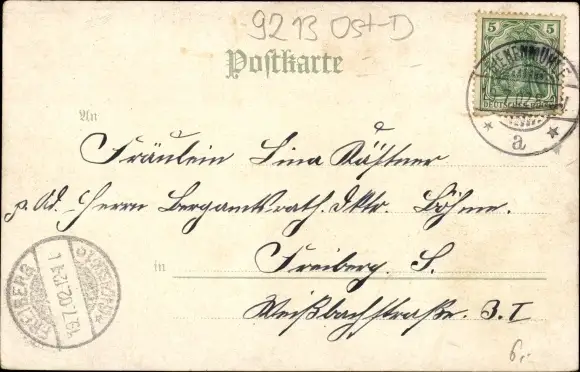 9213 Ost-D
Postkarte
5
DEUTSCHES REICH
a
An
Fräulein Lina Kästner
p. Ad. Herrn Bergamtsrath. Dktr. Böhme.
in Freiberg. S.
Weißbachstraße. 3. I
FREIBERG
(SACHSEN)
16.7.02.
6,-